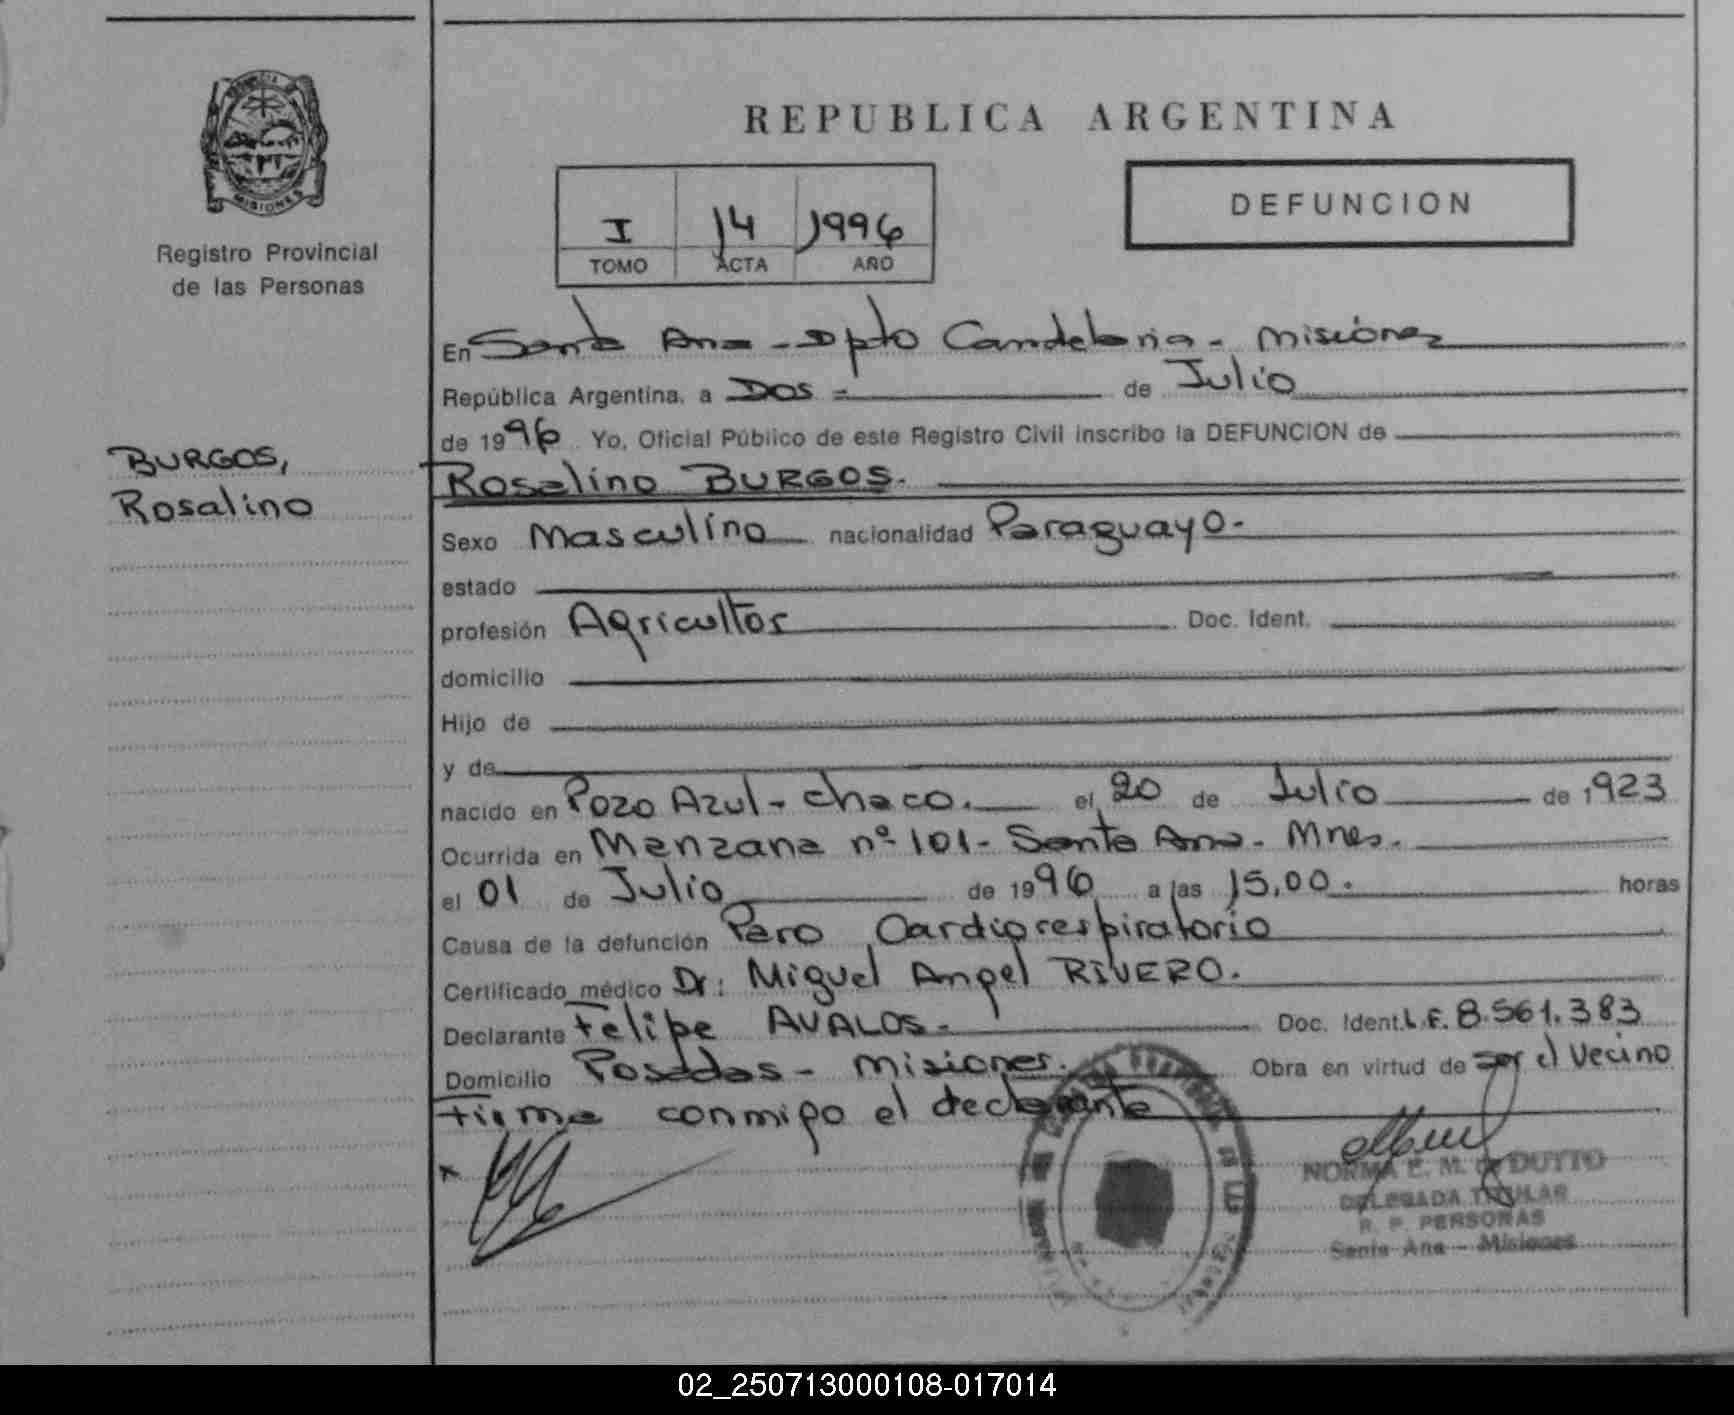 REPUBLICA ARGENTINA
MISIONES
Registro Provincial
de las Personas
I 14 1996
TOMO ACTA AÑO
DEFUNCION
BURGOS,
Rosalino
En Santa Ana - Dpto Candelaria - Misiones
República Argentina, a Dos = de Julio
de 1996 Yo, Oficial Público de este Registro Civil inscribo la DEFUNCION de
Rosalino BURGOS.
Sexo Masculino nacionalidad Paraguayo.-
estado
profesión Agricultor Doc. Ident.
domicilio
Hijo de
y de
nacido en Pozo Azul - Chaco. el 20 de Julio de 1923
Ocurrida en Manzana nº 101 - Santa Ana - Mnes.
el 01 de Julio de 1996 a las 15,00. horas
Causa de la defunción Paro Cardiorespiratorio
Certificado médico Dr: Miguel Angel RIVERO.
Declarante Felipe AVALOS - Doc. Ident. L.E. 8.561.383
Domicilio Posadas - Misiones. Obra en virtud de ser el Vecino
Firma conmigo el declarante
x
NORMA E. M. de DUTTO
DELEGADA TITULAR
R. P. PERSONAS
Santa Ana - Misiones
02_250713000108-017014